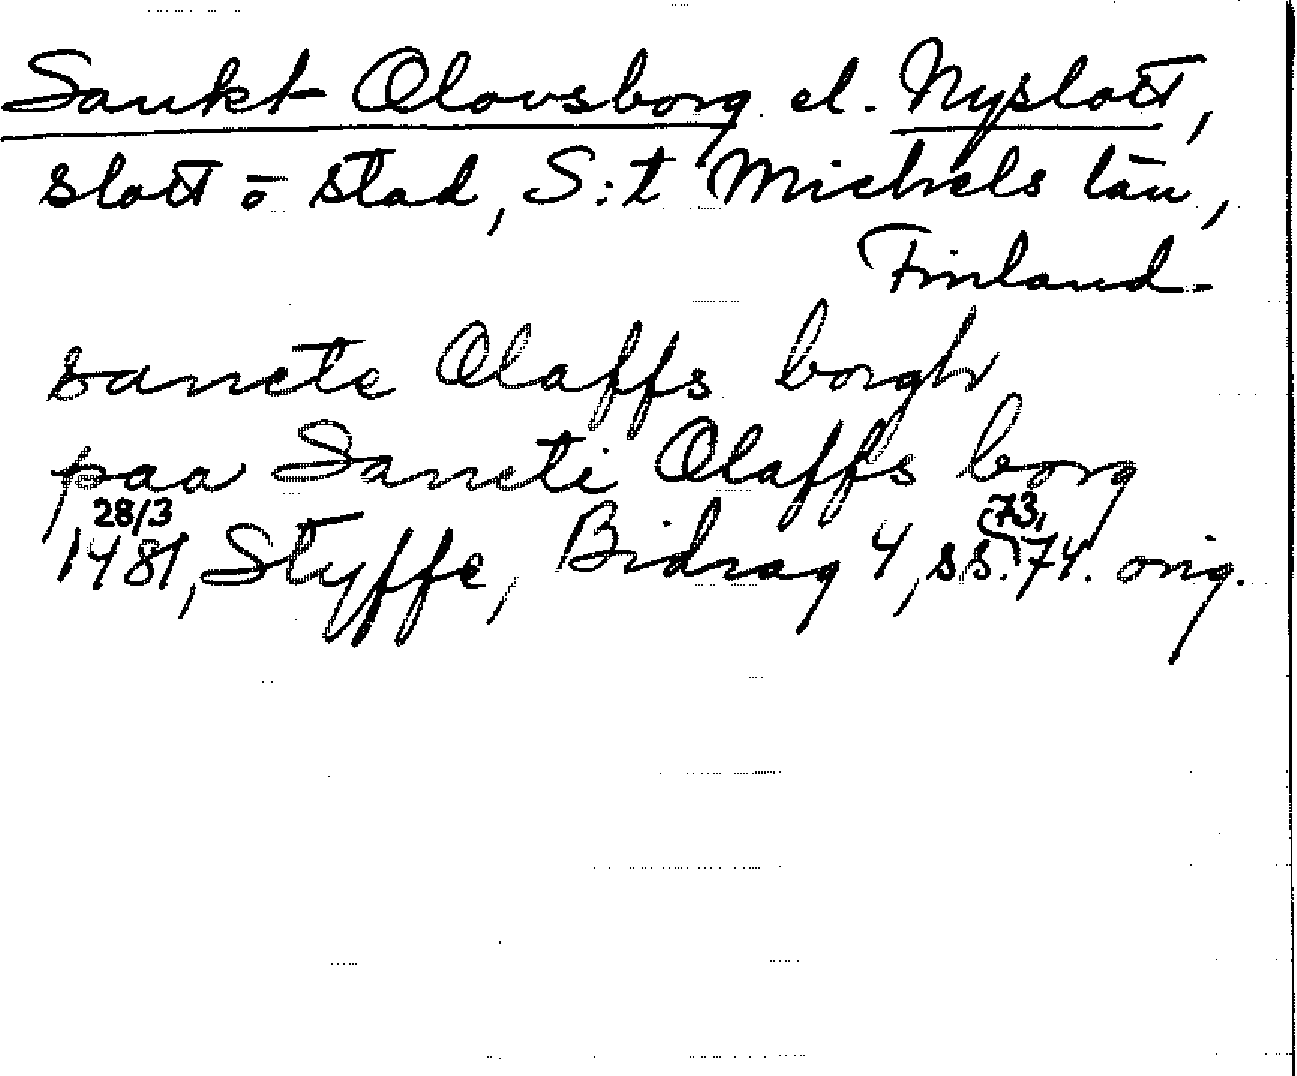 Sankt Olovsborg el. Nyslott,
slott ō stad, S:t Michels län,
Finland.
sancte Olaffs borgh
paa Sancti Olaffs borg
28/3 73,
1481, Styffe, Bidrag 4, ss. 74. orig.